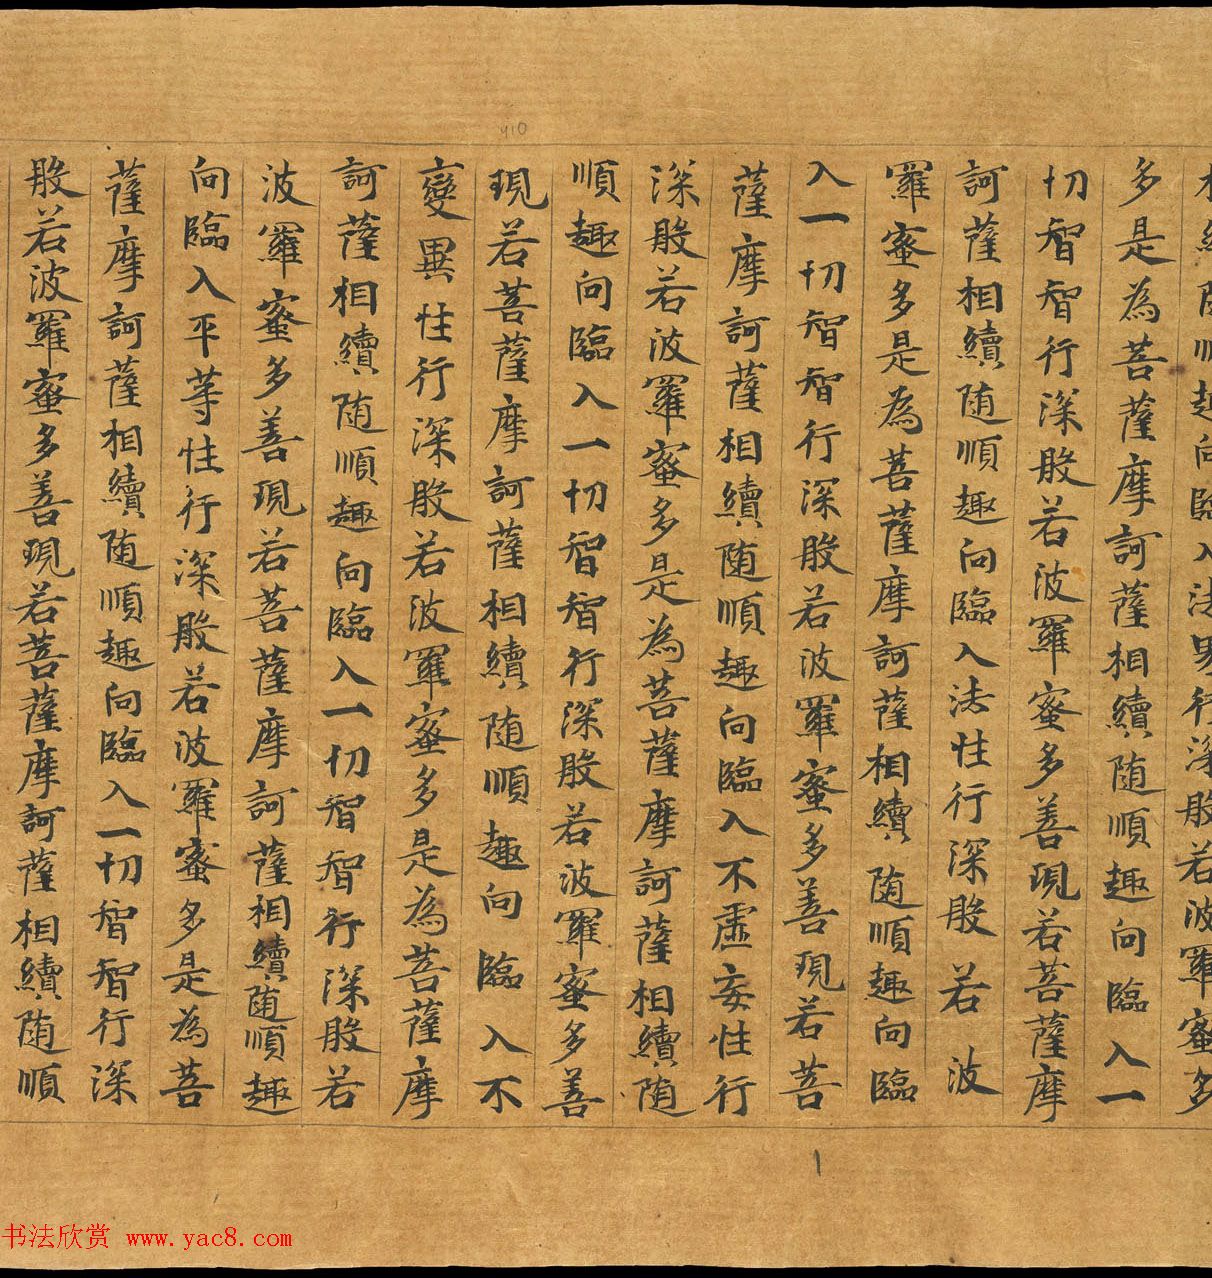 相續随順趣向臨入法界行深般若波羅蜜多
多是為菩薩摩訶薩相續随順趣向臨入一
切智智行深般若波羅蜜多善現若菩薩摩
訶薩相續随順趣向臨入法性行深般若波
羅蜜多是為菩薩摩訶薩相續随順趣向臨
入一切智智行深般若波羅蜜多善現若菩
薩摩訶薩相續随順趣向臨入不虛妄性行
深般若波羅蜜多是為菩薩摩訶薩相續随
順趣向臨入一切智智行深般若波羅蜜多善
現若菩薩摩訶薩相續随順趣向臨入不
變異性行深般若波羅蜜多是為菩薩摩
訶薩相續随順趣向臨入一切智智行深般若
波羅蜜多善現若菩薩摩訶薩相續随順趣
向臨入平等性行深般若波羅蜜多是為菩
薩摩訶薩相續随順趣向臨入一切智智行深
般若波羅蜜多善現若菩薩摩訶薩相續随順
书法欣赏 www.yac8.com